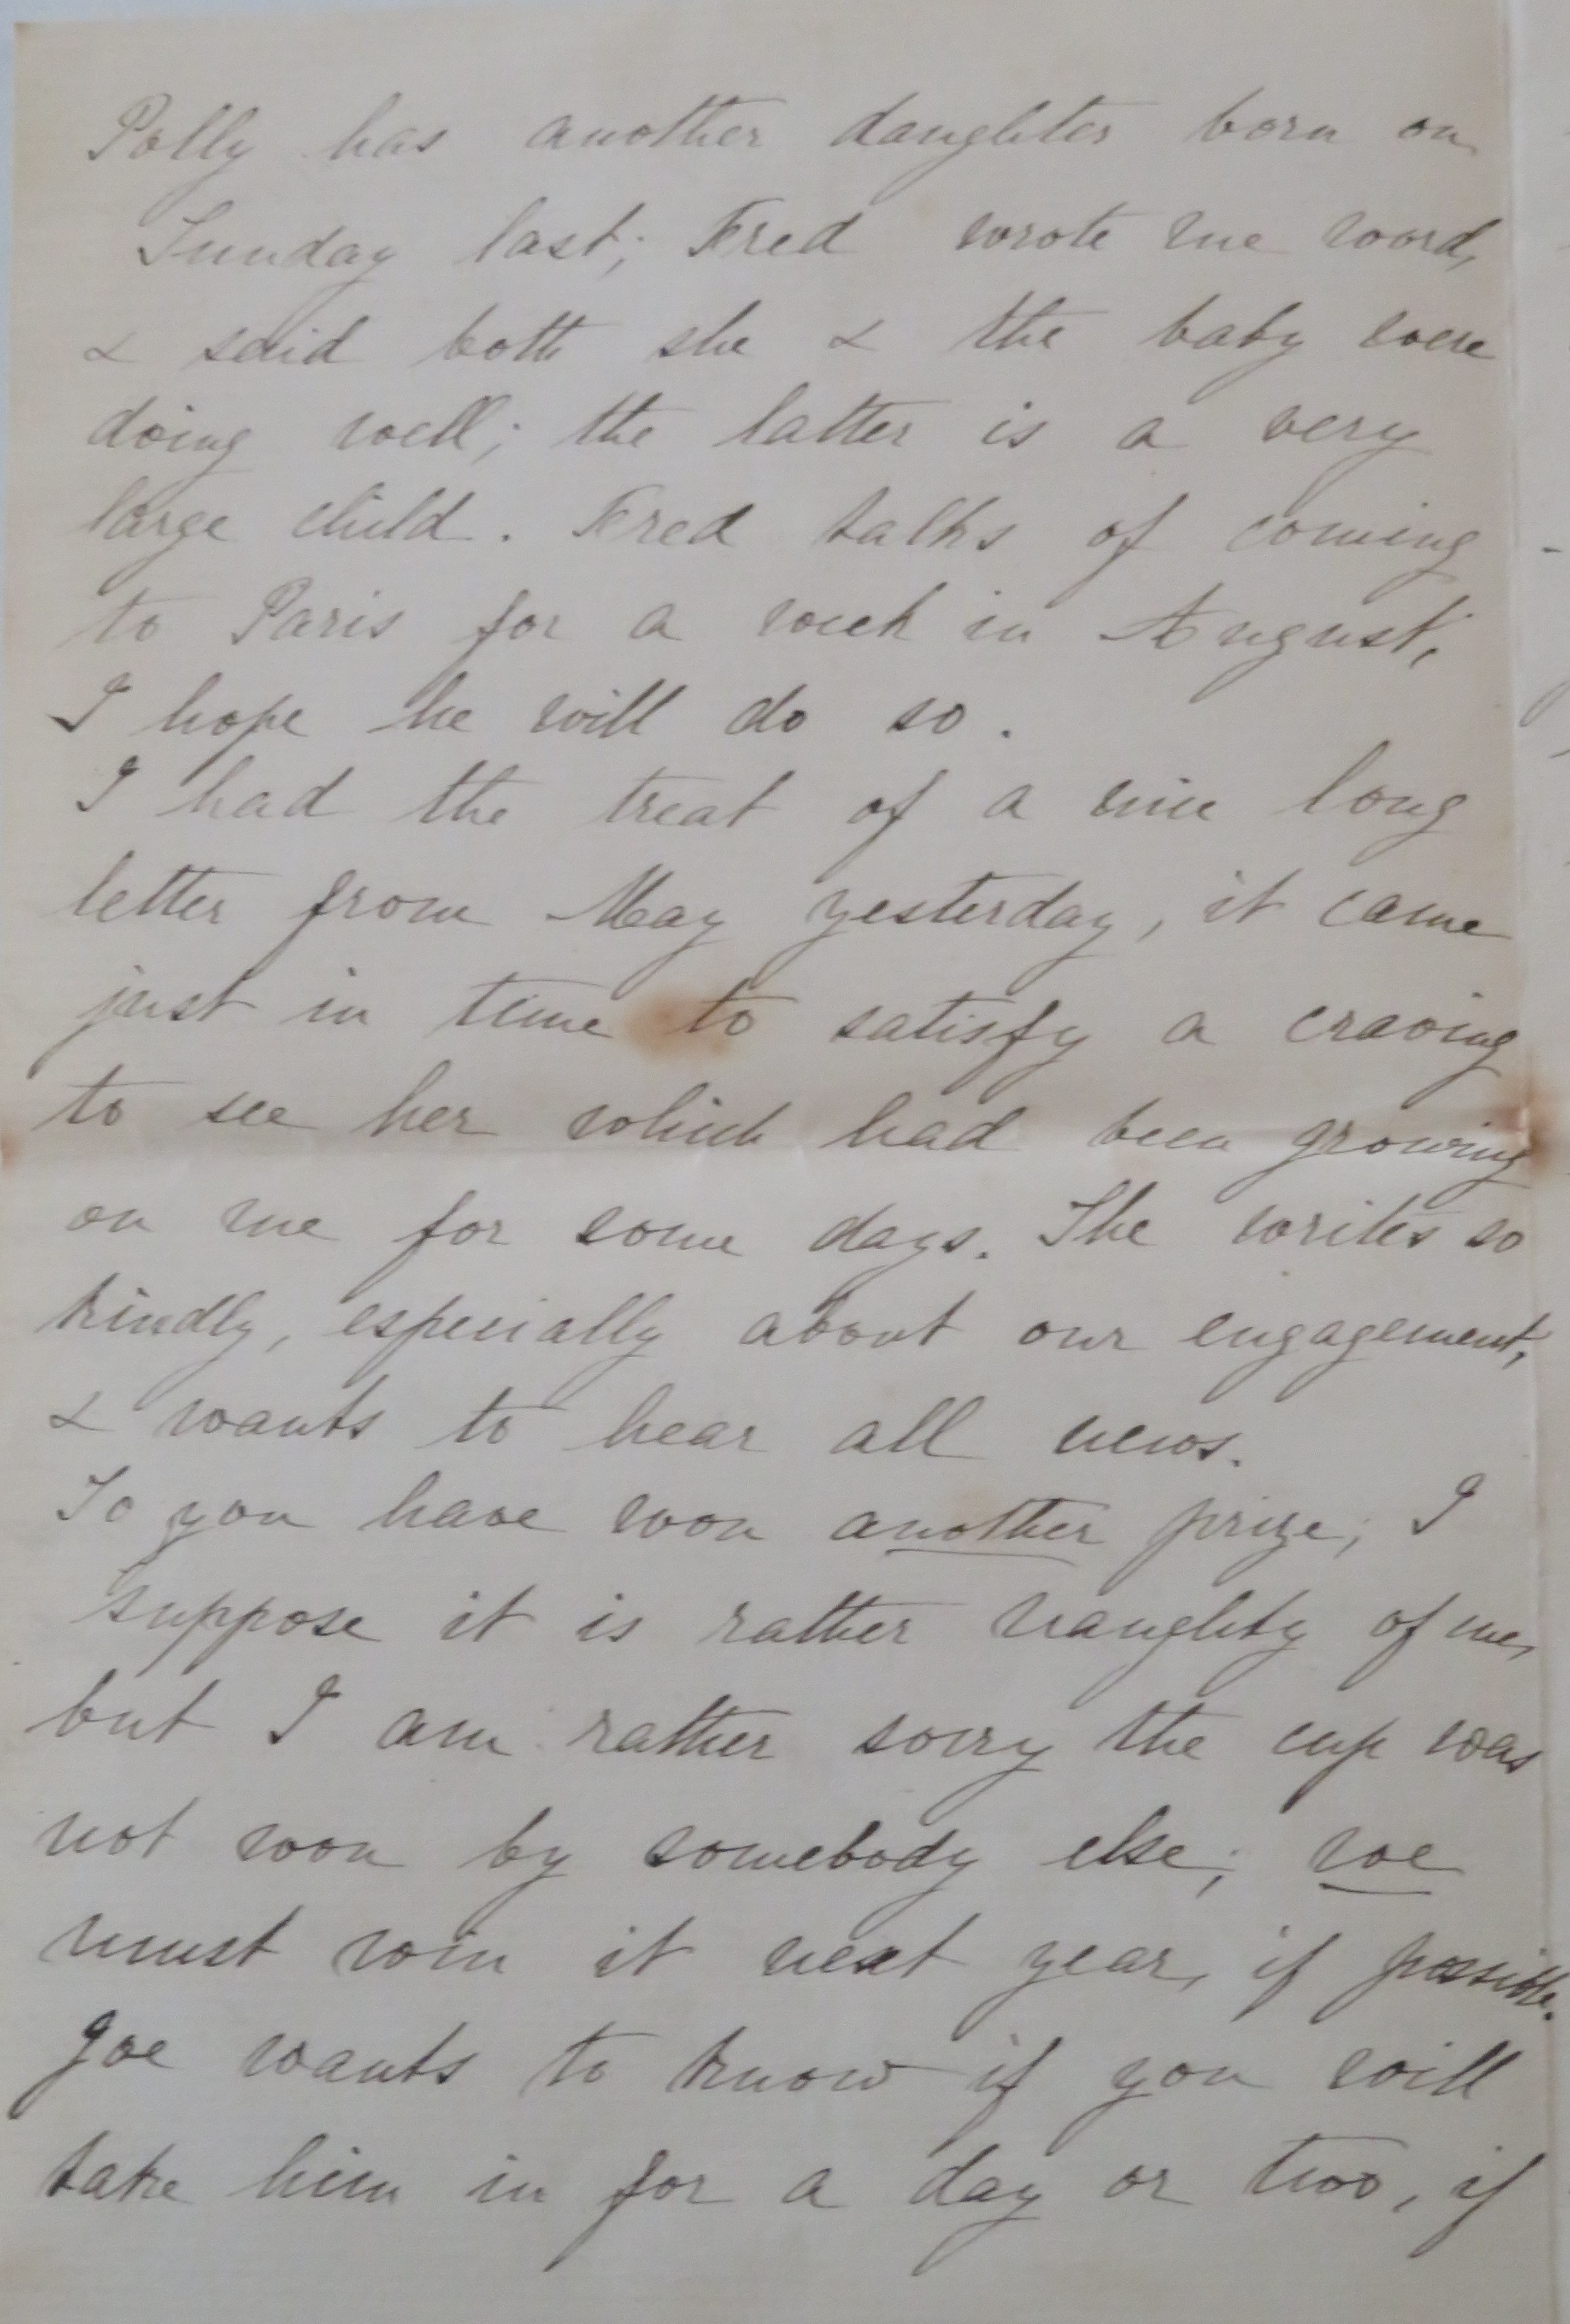 Polly has another daughter born on
Sunday last; Fred wrote me word,
& said both she & the baby were
doing well; the latter is a very
large child. Fred talks of coming
to Paris for a week in August,
I hope he will do so.
I had the treat of a nice long
letter from May yesterday, it came
just in time to satisfy a craving
to see her which had been growing
on me for some days. She writes so
kindly, especially about our engagement,
& wants to hear all news.
So you have won another prize; I
suppose it is rather naughty of me,
but I am rather sorry the cup was
not won by somebody else; we
must win it next year, if possible.
Joe wants to know if you will
take him in for a day or two, if